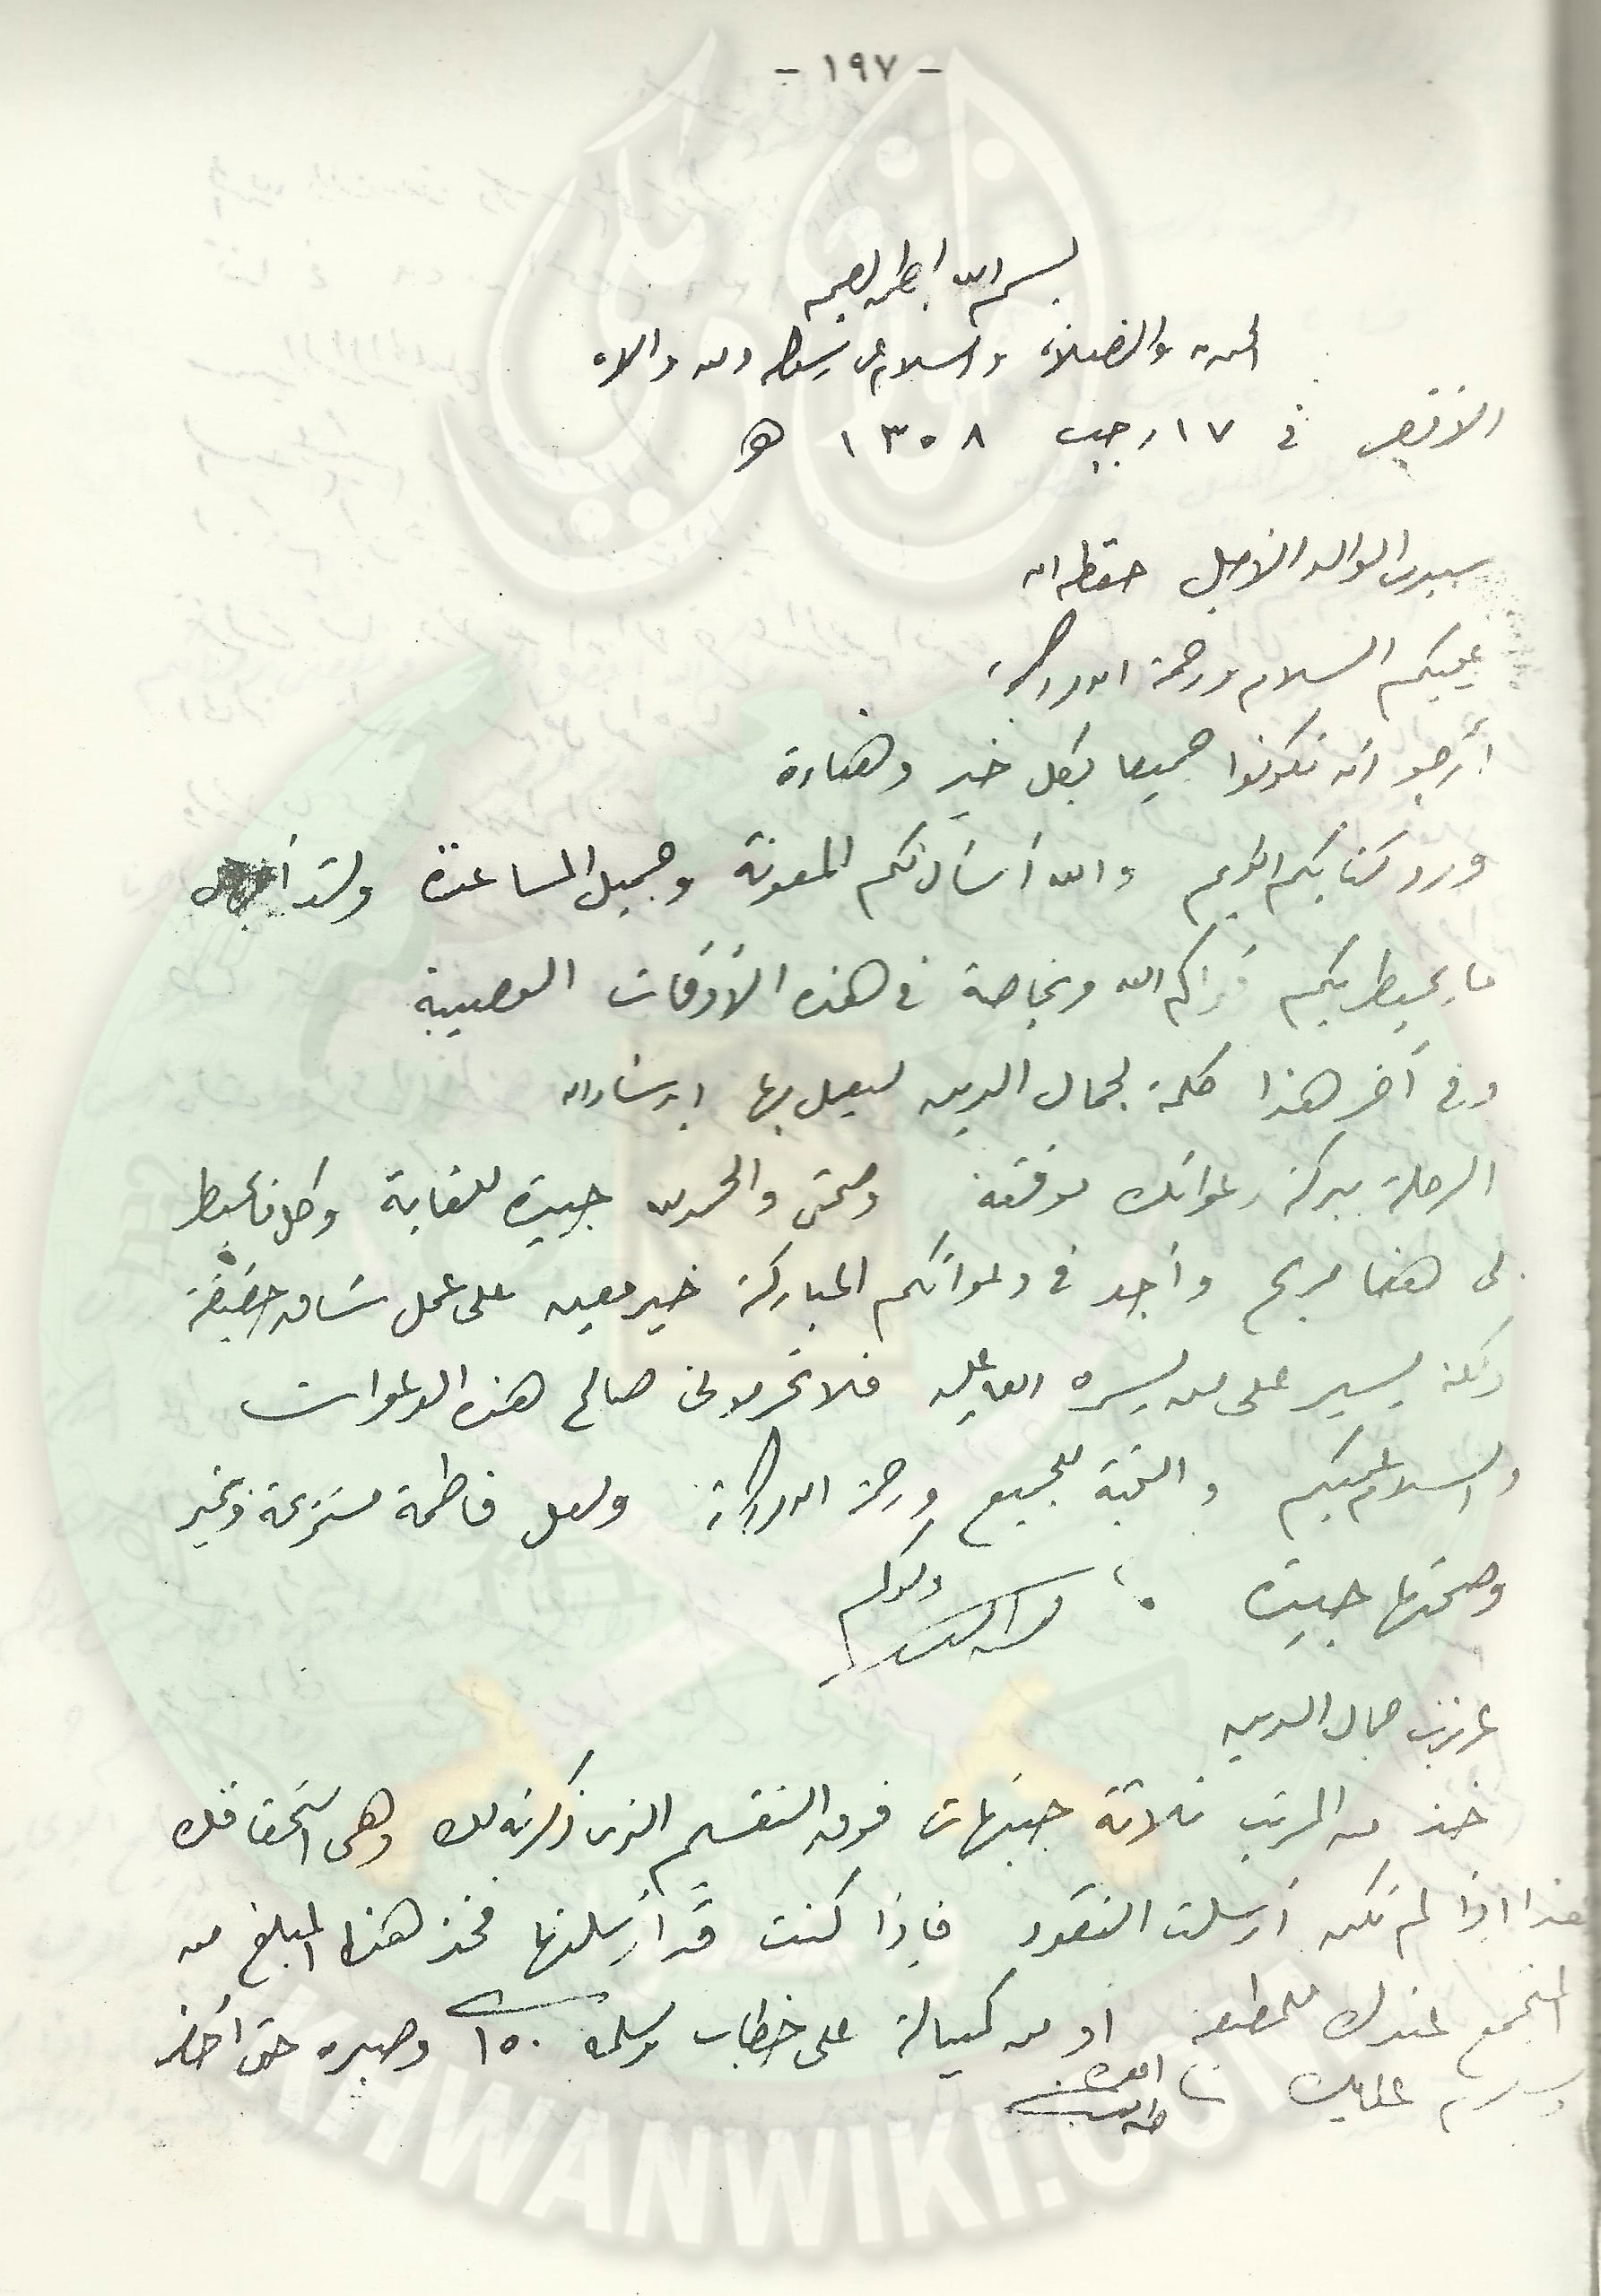 - ١٩٧ -
بسم الله الرحمن الرحيم
الحمد لله والصلاة والسلام على رسول الله ومن والاه
الأقصر في ١٧ رجب ١٣٥٨ هـ
سيدي الوالد الأجل حفظه الله
عليكم السلام ورحمة الله وبركاته
أرجو أن تكونوا جميعا بكل خير وهناءة
ورد كتابكم الكريم والله أسأل لكم المعونة وجميل المساعدة ولقد
ما يحيط بكم الله وبخاصة في هذه الأوقات العصيبة
وفي آخر هذا كلمة لجمال الدين ليعمل بها إن شاء الله
الرحلة ببركة دعواتك موفقة وصحتي والحمد لله جيدة للغاية وكل ما يحيط
بي هنا مريح وأجد في دعواتكم المباركة خير معين على عمل شاق حقيقة
ولكنه يسير على من يسره الله عليه فلا تحرموني صالح هذه الدعوات
والسلام عليكم والتحية للجميع ورحمة الله وبركاته ولعل فاطمة مستريحة وبخير
وصحتها جيدة
ولدكم
حسن البنا
عزيزي جمال الدين
خذ من المرتب ثلاثة جنيهات فوق التقسيم الذي ذكرته لك وهي استحقاقك
هذا إذا لم تكن أرسلت النقود فإذا كنت قد أرسلتها فخذ هذا المبلغ من
المتجمع عندك للمطبعة أو من كمبيالة على خطاب وسلمه ١٥٠ وصبره حتى أحضر
وسلام عليك